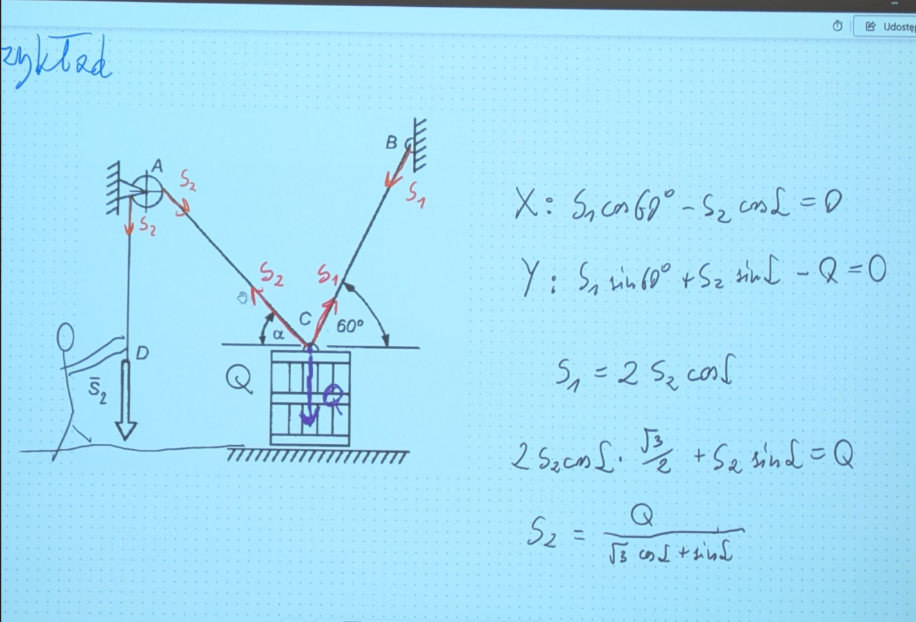 Udostęp
zykład
A
B
S₂
S₁
S₂
S₂
S₁
C
α
60°
D
Q
Q
S̄₂
X: S₁ cos60° - S₂ cosα = 0
Y: S₁ sin60° + S₂ sinα - Q = 0
S₁ = 2 S₂ cosα
2 S₂ cosα · √3/2 + S₂ sinα = Q
S₂ = Q / (√3 cosα + sinα)